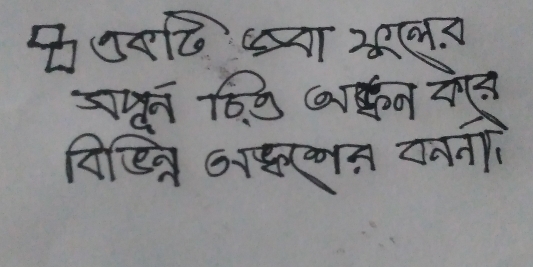 একটি জবা ফুলের
সম্পূর্ন চিত্র অঙ্কন করে
বিভিন্ন অংশের বননা।